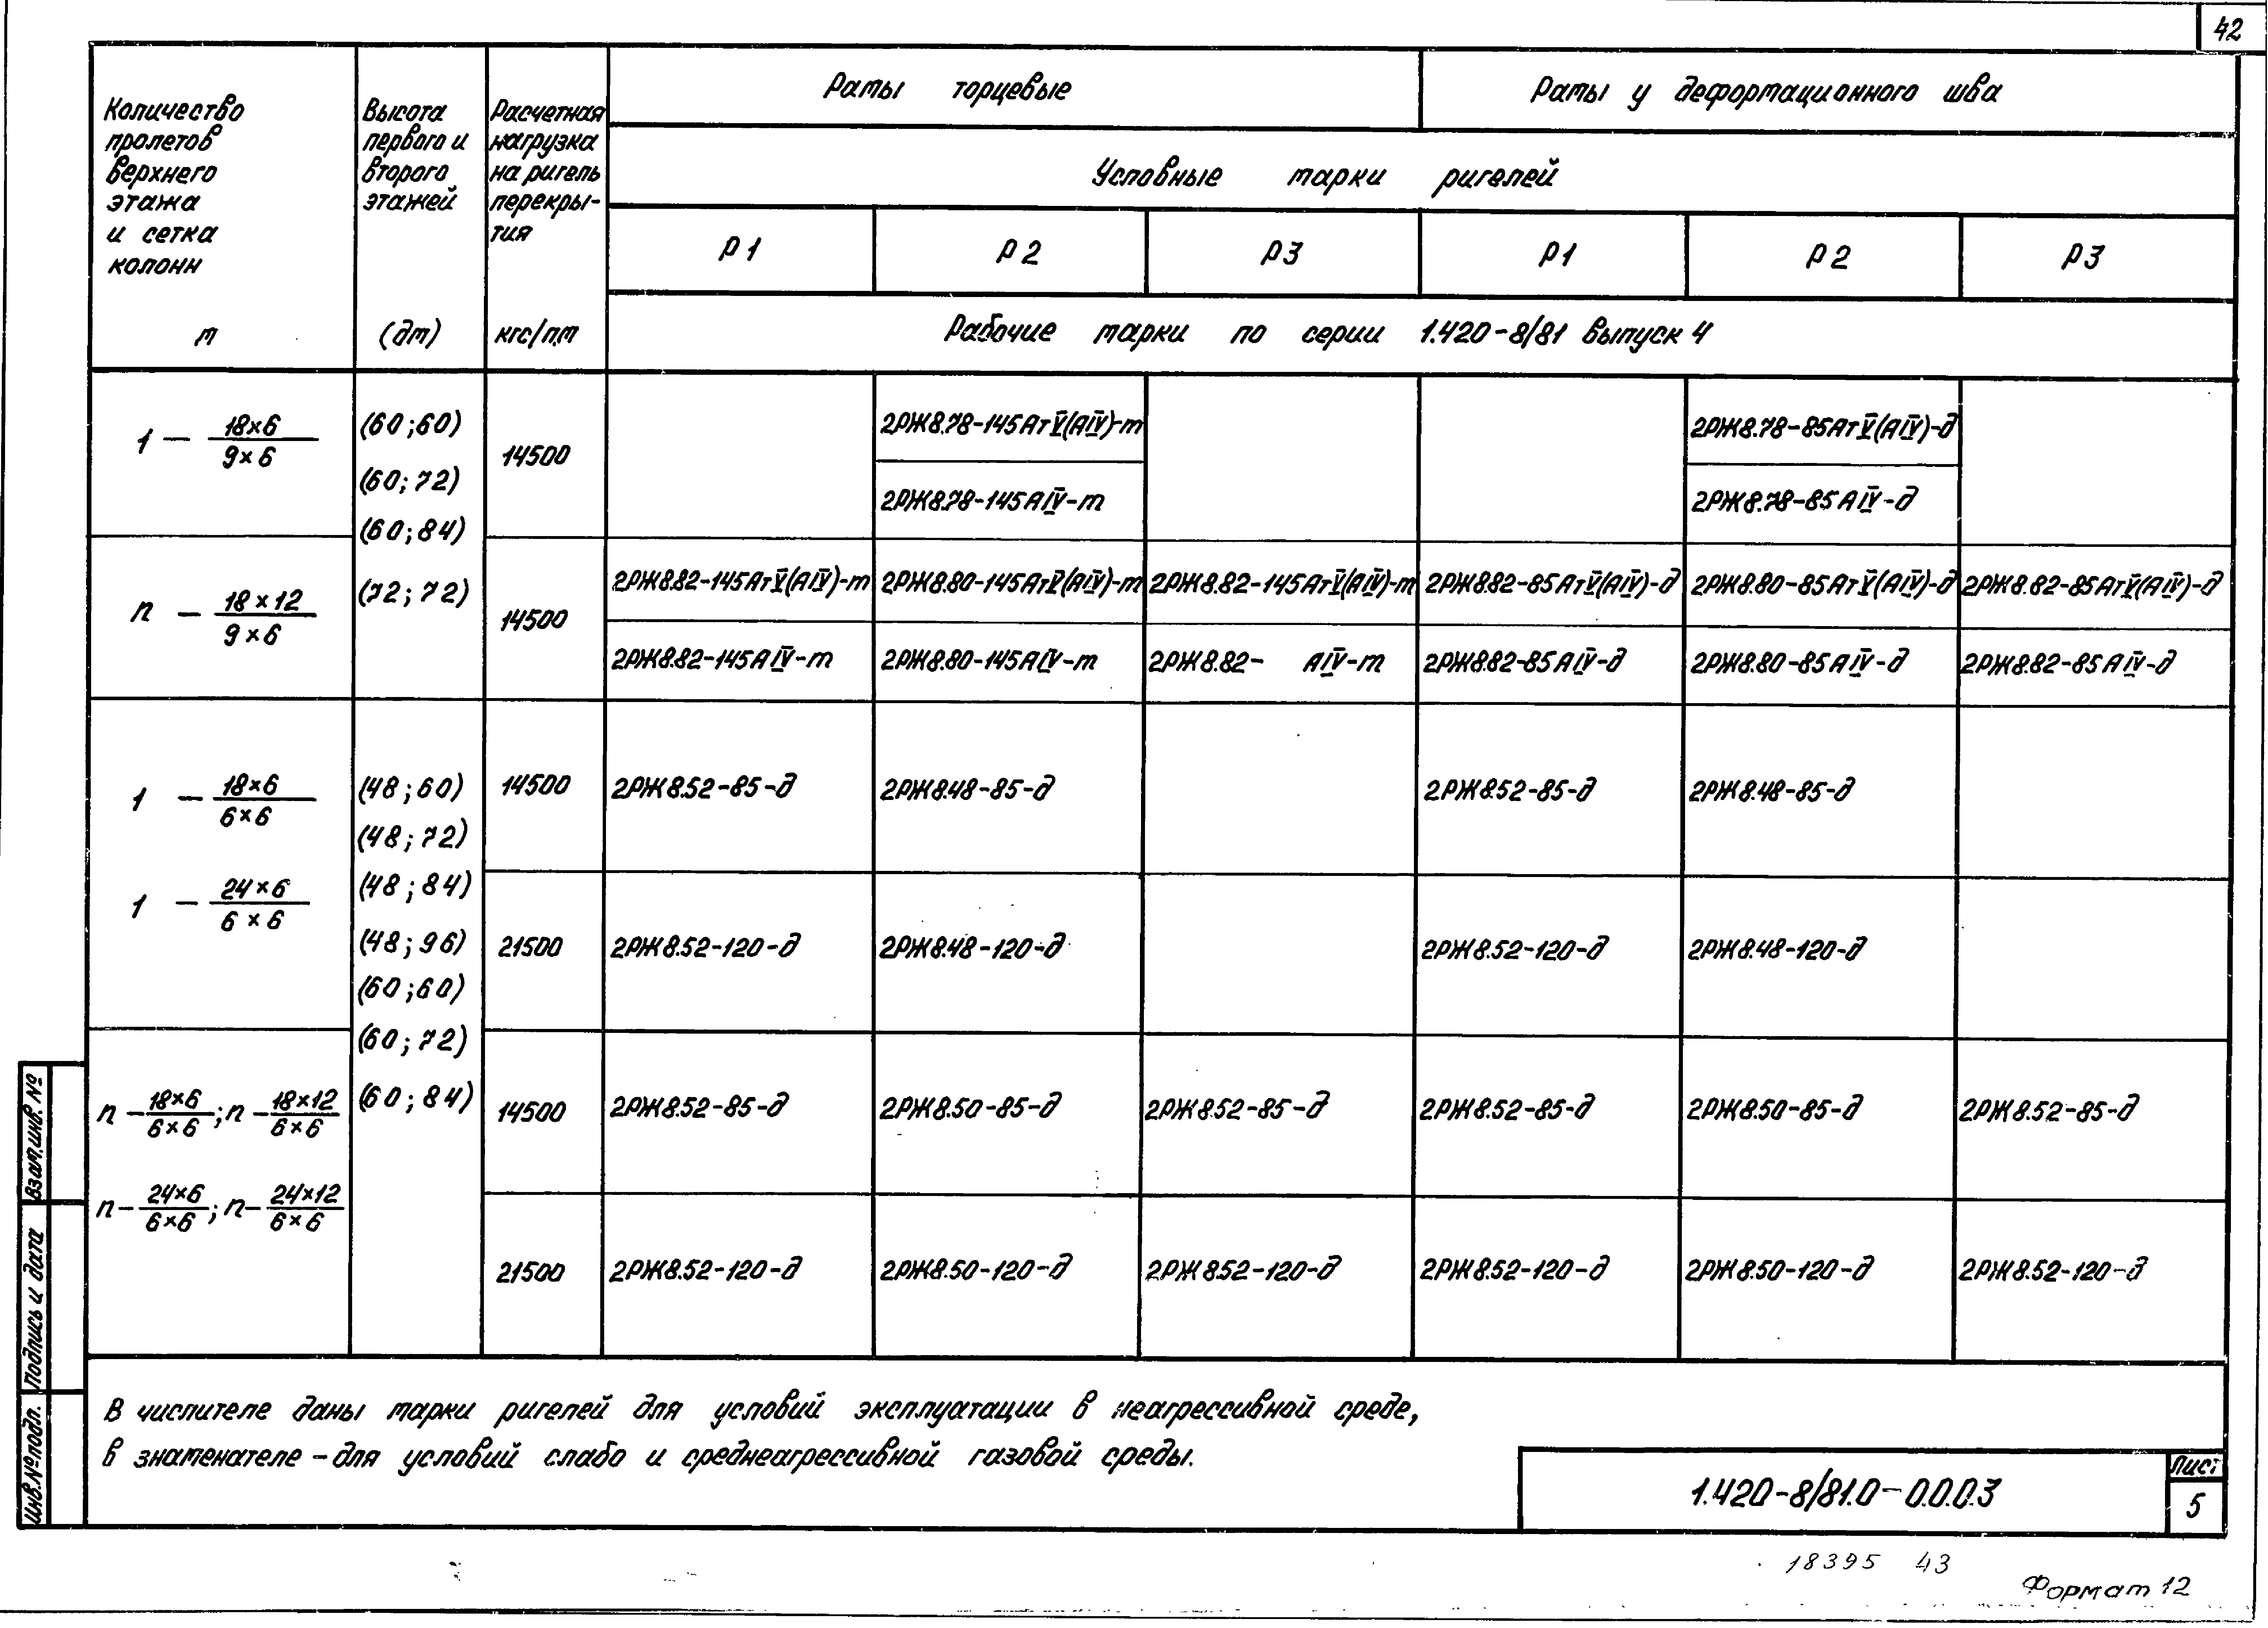 42
Количество
пролетов
верхнего
этажа
и сетка
колонн
м
Высота
первого и
второго
этажей
(дм)
Расчетная
нагрузка
на ригель
перекры-
тия
кгс/п.м
Рамы торцевые
Рамы у деформационного шва
Условные марки ригелей
Р1 Р2 Р3 Р1 Р2 Р3
Рабочие марки по серии 1.420-8/81 выпуск 4
1 — 18×6
9×6
(60;60)
(60;72)
(60;84)
14500
2РЖ8.78-145АтV(АIV)-т
2РЖ8.78-85АтV(АIV)-д
2РЖ8.78-145АIV-т
2РЖ8.78-85АIV-д
n — 18×12
9×6
(72;72)
14500
2РЖ8.82-145АтV(АIV)-т 2РЖ8.80-145АтV(АIV)-т 2РЖ8.82-145АтV(АIV)-т 2РЖ8.82-85АтV(АIV)-д 2РЖ8.80-85АтV(АIV)-д 2РЖ8.82-85АтV(АIV)-д
2РЖ8.82-145АIV-т 2РЖ8.80-145АIV-т 2РЖ8.82- АIV-т 2РЖ8.82-85АIV-д 2РЖ8.80-85АIV-д 2РЖ8.82-85АIV-д
1 — 18×6
6×6
1 — 24×6
6×6
(48;60)
(48;72)
(48;84)
(48;96)
(60;60)
(60;72)
(60;84)
14500 2РЖ8.52-85-д 2РЖ8.48-85-д 2РЖ8.52-85-д 2РЖ8.48-85-д
21500 2РЖ8.52-120-д 2РЖ8.48-120-д 2РЖ8.52-120-д 2РЖ8.48-120-д
n — 18×6 ; n — 18×12
6×6 6×6
n — 24×6 ; n — 24×12
6×6 6×6
14500 2РЖ8.52-85-д 2РЖ8.50-85-д 2РЖ8.52-85-д 2РЖ8.52-85-д 2РЖ8.50-85-д 2РЖ8.52-85-д
21500 2РЖ8.52-120-д 2РЖ8.50-120-д 2РЖ8.52-120-д 2РЖ8.52-120-д 2РЖ8.50-120-д 2РЖ8.52-120-д
В числителе даны марки ригелей для условий эксплуатации в неагрессивной среде,
в знаменателе - для условий слабо и среднеагрессивной газовой среды.
Взам.инв.№
Подпись и дата
Инв.№подл.
1.420-8/81.0-0.0.03
Лист
5
18395 43
Формат 12